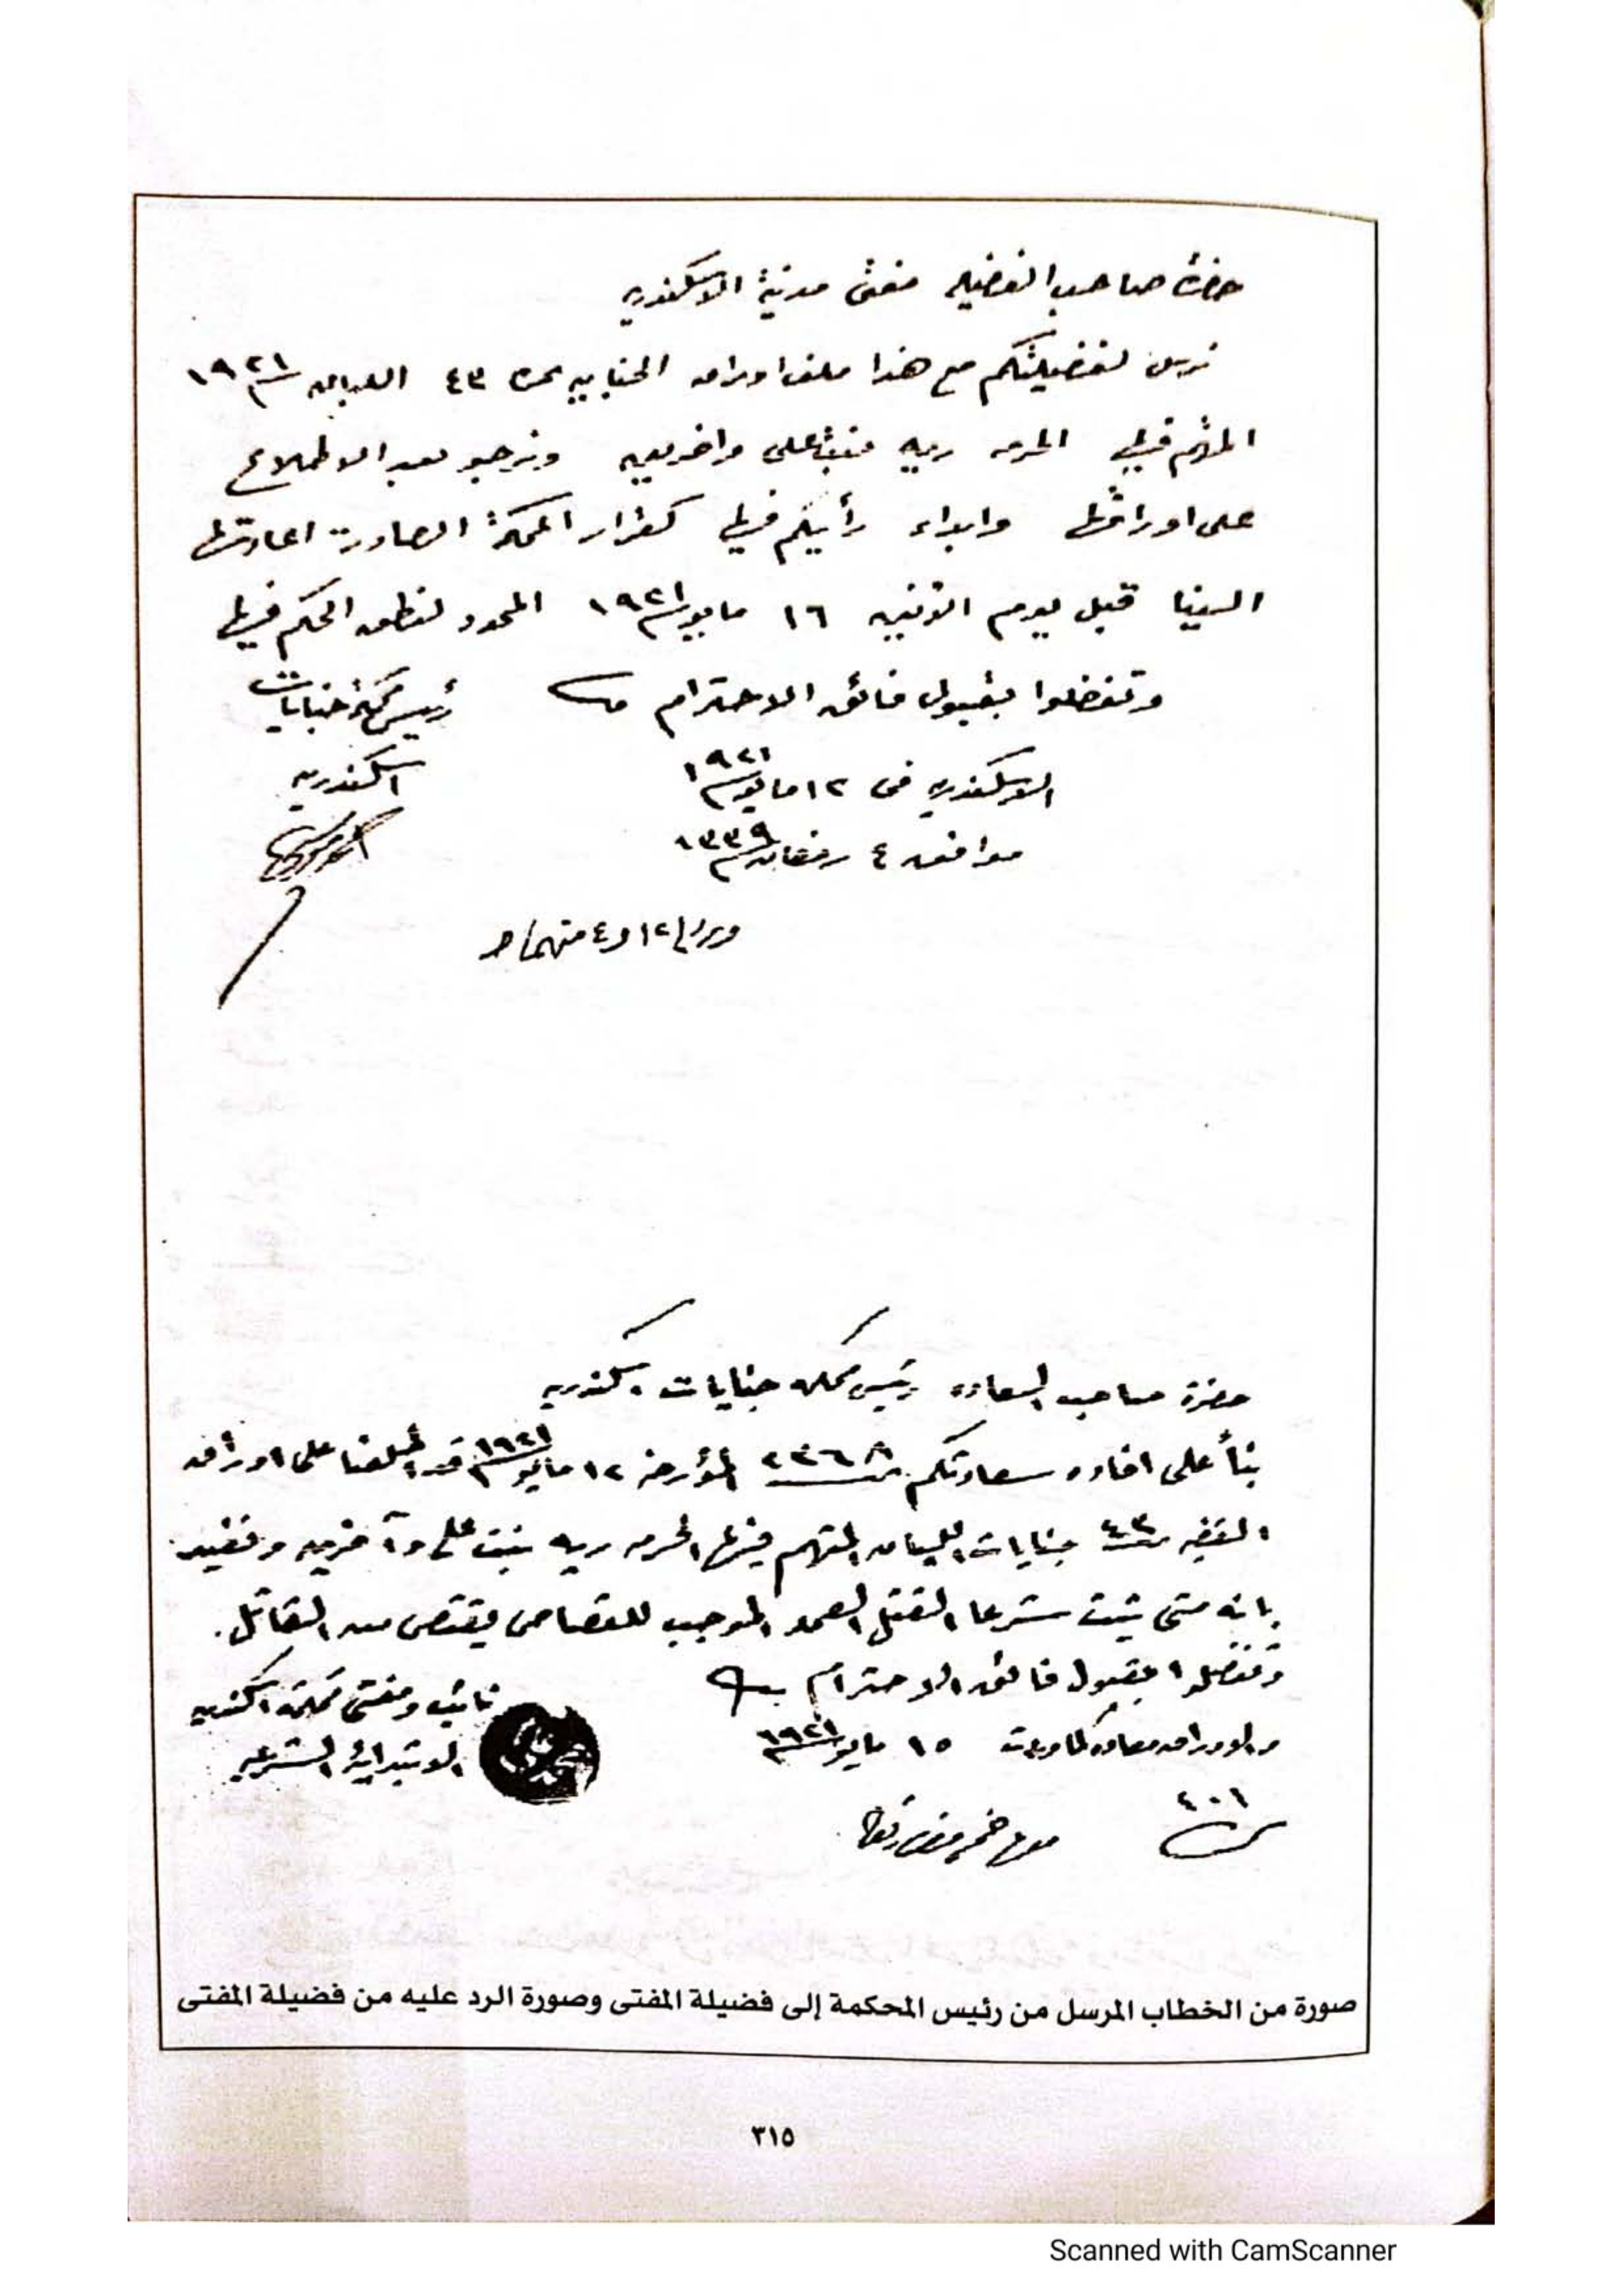 حضرة صاحب الفضيله مفتى مدينة الاسكندريه
نرسل لفضيلتكم مع هذا ملف اوراق الجنايه نمرة ٤٣ اللبان سنة ١٩٢١
المتهم فيها الحرمه ريه بنت على واخرين ونرجو بعد الاطلاع
على اوراقها وابداء رأيكم فيها كقرار المحكمة الصادر اعادتها
الينا قبل يوم الاثنين ١٦ مايو سنة ١٩٢١ المحدد لنطق الحكم فيها
وتفضلوا بقبول فائق الاحترام
رئيس محكمة جنايات
اسكندريه
الاسكندريه فى ١٢ مايو سنة ١٩٢١
موافق ٤ رمضان سنة ١٣٣٩
حضرة صاحب السعاده رئيس محكمة جنايات اسكندريه
بنأ على افاده سعادتكم نمرة ٢٣٦٨ المؤرخه ١٢ مايو سنة ١٩٢١ قد اطلعنا على اوراق
القضيه نمرة ٤٣ جنايات اللبان المتهم فيها الحرمه ريه بنت على وآخرين ونفيد
بانه متى ثبت شرعا القتل العمد الموجب للقصاص يقتص من القاتل.
وتفضلوا بقبول فائق الاحترام
نائب ومفتى محكمة اسكندريه
الابتدائية الشرعيه
والاوراق معاده كما وردت ١٥ مايو سنة ١٩٢١
٤٠٦
صورة من الخطاب المرسل من رئيس المحكمة إلى فضيلة المفتى وصورة الرد عليه من فضيلة المفتى
٣١٥
Scanned with CamScanner